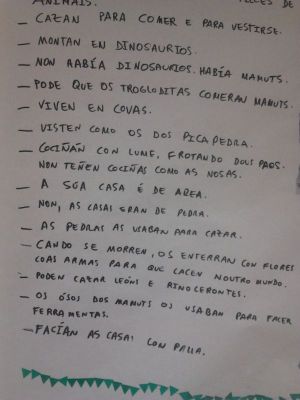 ANIMAIS. PELES DE
– CAZAN PARA COMER E PARA VESTIRSE.
– MONTAN EN DINOSAURIOS.
– NON HABÍA DINOSAURIOS. HABÍA MAMUTS.
– PODE QUE OS TROGLODITAS COMERAN MAMUTS.
– VIVEN EN COVAS.
– VISTEN COMO OS DOS PICAPEDRA.
– COCIÑAN CON LUME, FROTANDO DOUS PAOS.
NON TEÑEN COCIÑAS COMO AS NOSAS.
– A SÚA CASA É DE AREA.
– NON, AS CASAS ERAN DE PEDRA.
– AS PEDRAS AS USABAN PARA CAZAR.
– CANDO SE MORREN, OS ENTERRAN CON FLORES
COAS ARMAS PARA QUE CACEN NOUTRO MUNDO.
– PODEN CAZAR LEÓNS E RINOCERONTES.
– OS ÓSOS DOS MAMUTS OS USABAN PARA FACER
FERRAMENTAS.
– FACÍAN AS CASAS CON PALLA.